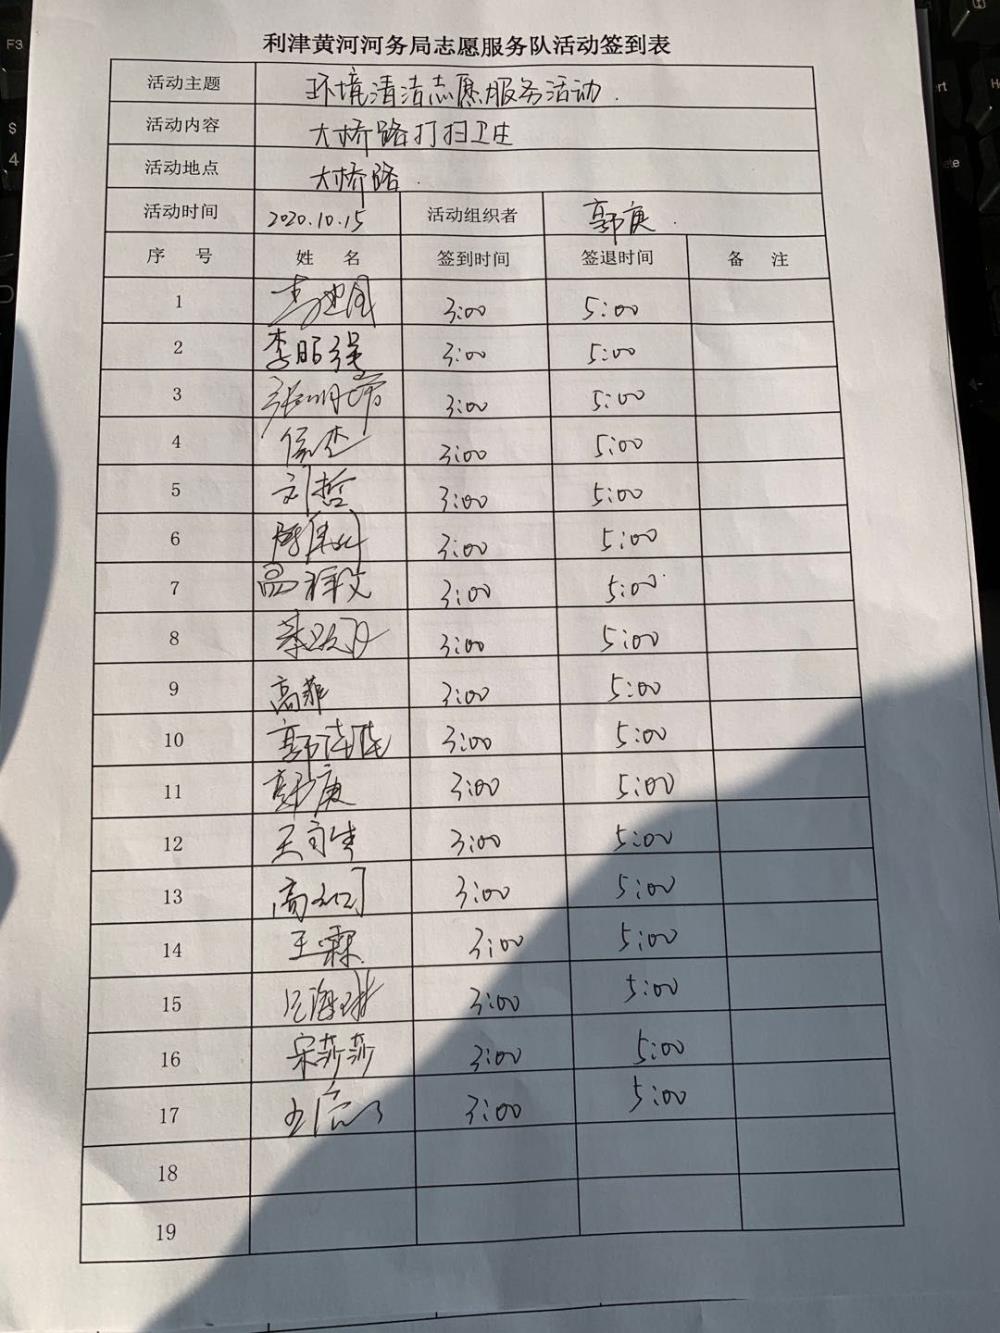 利津黄河河务局志愿服务队活动签到表
活动主题 环境清洁志愿服务活动.
活动内容 大桥路打扫卫生
活动地点 大桥路.
活动时间 2020.10.15 活动组织者 郭庚.
序 号 姓 名 签到时间 签退时间 备 注
1 3:00 5:00
2 李昭强 3:00 5:00
3 3:00 5:00
4 侯杰 3:00 5:00
5 刘哲 3:00 5:00
6 3:00 5:00
7 3:00 5:00
8 3:00 5:00
9 高菲 3:00 5:00
10 郭佳佳 3:00 5:00
11 郭庚 3:00 5:00
12 3:00 5:00
13 3:00 5:00
14 王霖 3:00 5:00
15 3:00 5:00
16 宋莎莎 3:00 5:00
17 3:00 5:00
18
19
F3
$
4